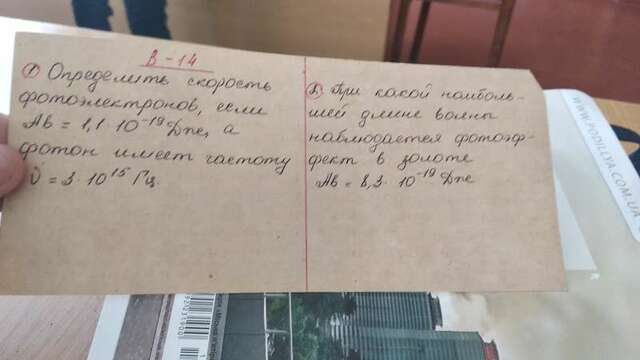 В-14
① Определить скорость
фотоэлектронов, если
Ав = 1,1·10⁻¹⁹ Дж, а
фотон имеет частоту
ν = 3·10¹⁵ Гц.
2. При какой наиболь-
шей длине волны
наблюдается фотоэф-
фект в золоте
Ав = 8,3·10⁻¹⁹ Дж
WWW.PODILLYA.COM.UA